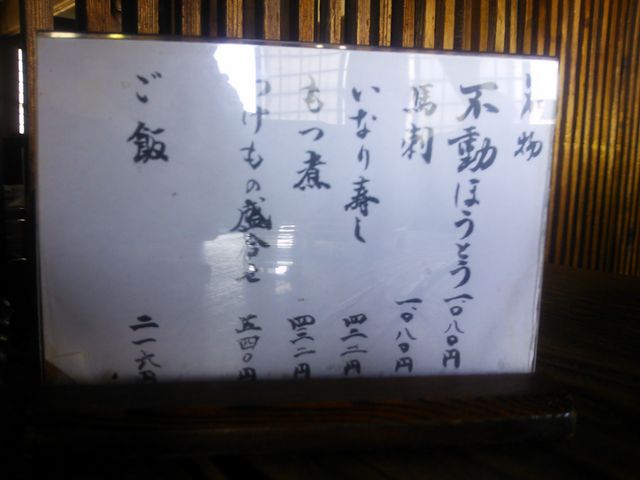 物
不動ほうとう 一、〇八〇円
馬刺 一、〇八〇円
いなり寿し 四三二円
もつ煮 四三二円
つけもの盛合せ 五四〇円
ご飯 二一六円